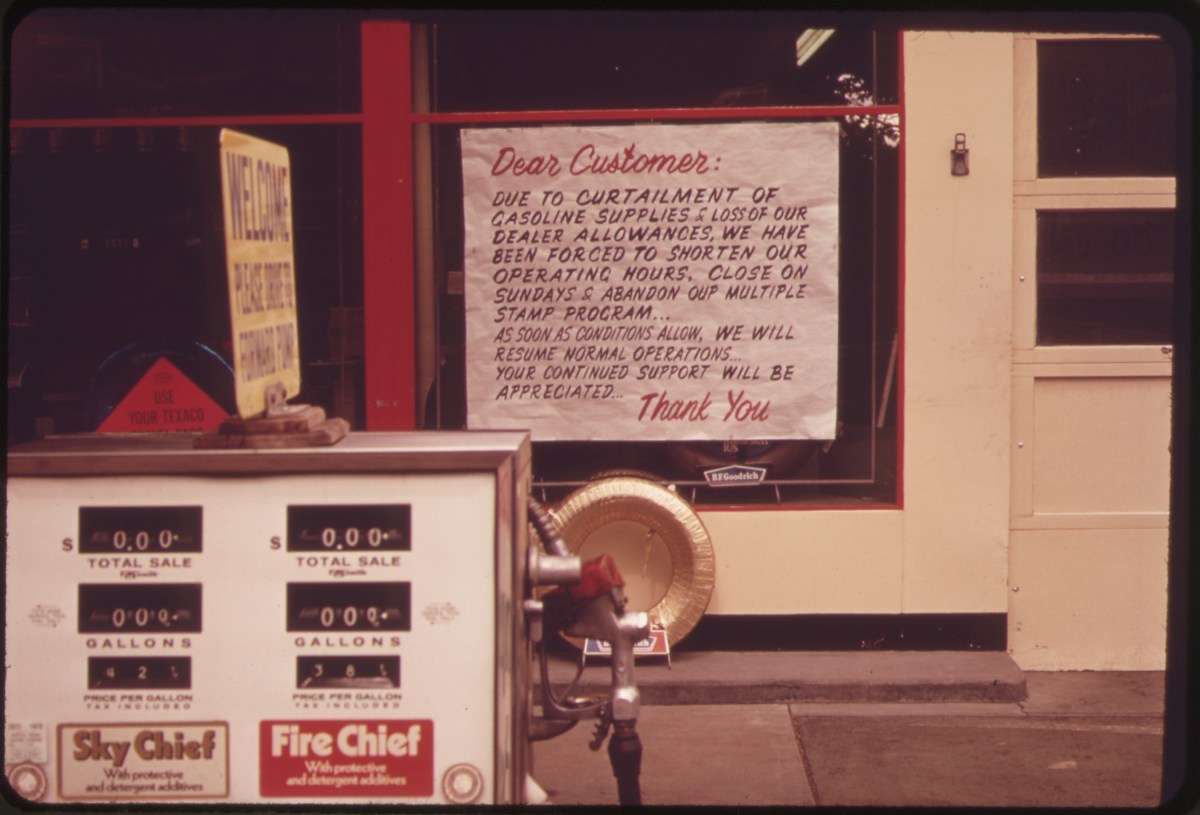 WELCOME
PLEASE DRIVE TO
FORWARD PUMP
USE
YOUR TEXACO
Dear Customer:
DUE TO CURTAILMENT OF
GASOLINE SUPPLIES & LOSS OF OUR
DEALER ALLOWANCES, WE HAVE
BEEN FORCED TO SHORTEN OUR
OPERATING HOURS, CLOSE ON
SUNDAYS & ABANDON OUR MULTIPLE
STAMP PROGRAM...
AS SOON AS CONDITIONS ALLOW, WE WILL
RESUME NORMAL OPERATIONS...
YOUR CONTINUED SUPPORT WILL BE
APPRECIATED...
Thank You
BFGoodrich
$ 0.00
TOTAL SALE
000
GALLONS
42
PRICE PER GALLON
TAX INCLUDED
Sky Chief
With protective
and detergent additives
$ 0.00
TOTAL SALE
000
GALLONS
38
PRICE PER GALLON
TAX INCLUDED
Fire Chief
With protective
and detergent additives